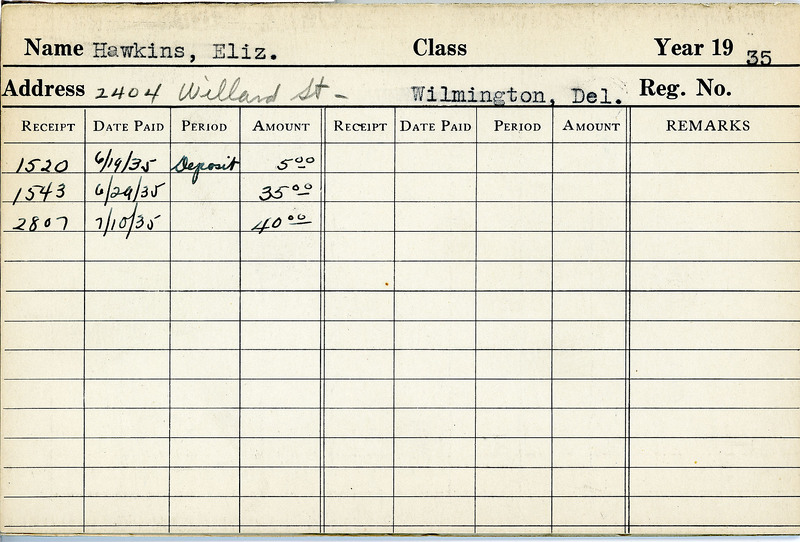 Name Hawkins, Eliz. Class Year 19 35
Address 2404 Willard St - Wilmington, Del. Reg. No.
RECEIPT DATE PAID PERIOD AMOUNT RECEIPT DATE PAID PERIOD AMOUNT REMARKS
1520 6/19/35 Deposit 5 00
1543 6/29/35 35 00
2807 7/10/35 40 00